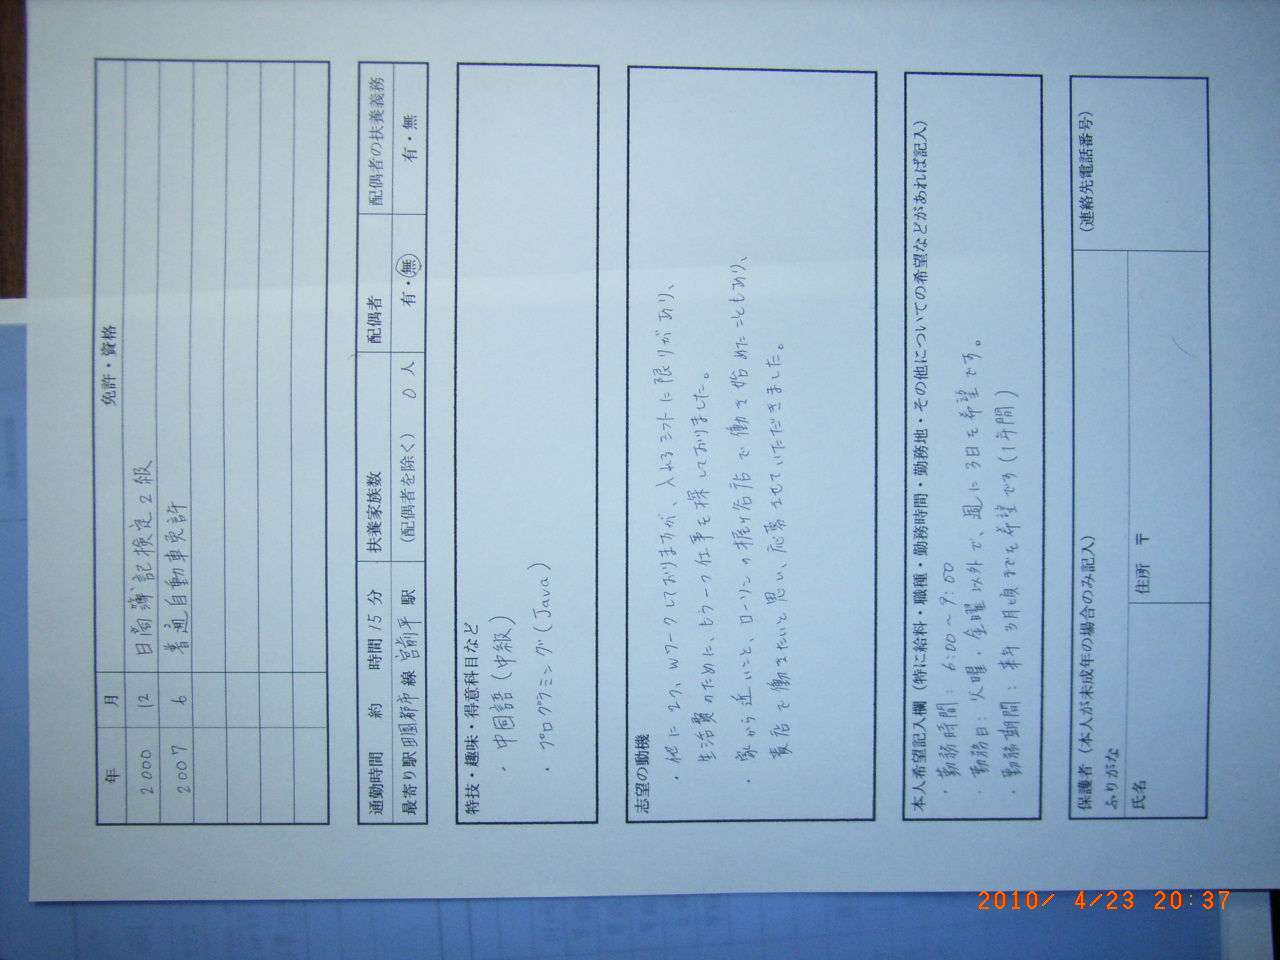 年 月 免許・資格
2000 12 日商簿記検定2級
2007 6 普通自動車免許
通勤時間 約 時間 15 分 扶養家族数 配偶者 配偶者の扶養義務
最寄り駅 田園都市 線 宮前平 駅 (配偶者を除く) 0 人 有・無 有・無
特技・趣味・得意科目など
・中国語(中級)
・プログラミング(Java)
志望の動機
・他に2つ、Wワークしておりますが、入れるシフトに限りがあり、
生活費のために、もう一つ仕事を探しておりました。
・家から近いこと、ローソンの梶ヶ谷店で働き始めたこともあり、
貴店で働きたいと思い、応募させていただきました。
本人希望記入欄(特に給料・職種・勤務時間・勤務地・その他についての希望などがあれば記入)
・勤務時間: 6:00~9:00
・勤務日: 火曜・金曜以外で、週に3日を希望です。
・勤務期間: 来年3月頃までを希望です(1年間)
保護者(本人が未成年の場合のみ記入)
ふりがな (連絡先電話番号)
氏名 住所 〒
2010/ 4/23 20:37